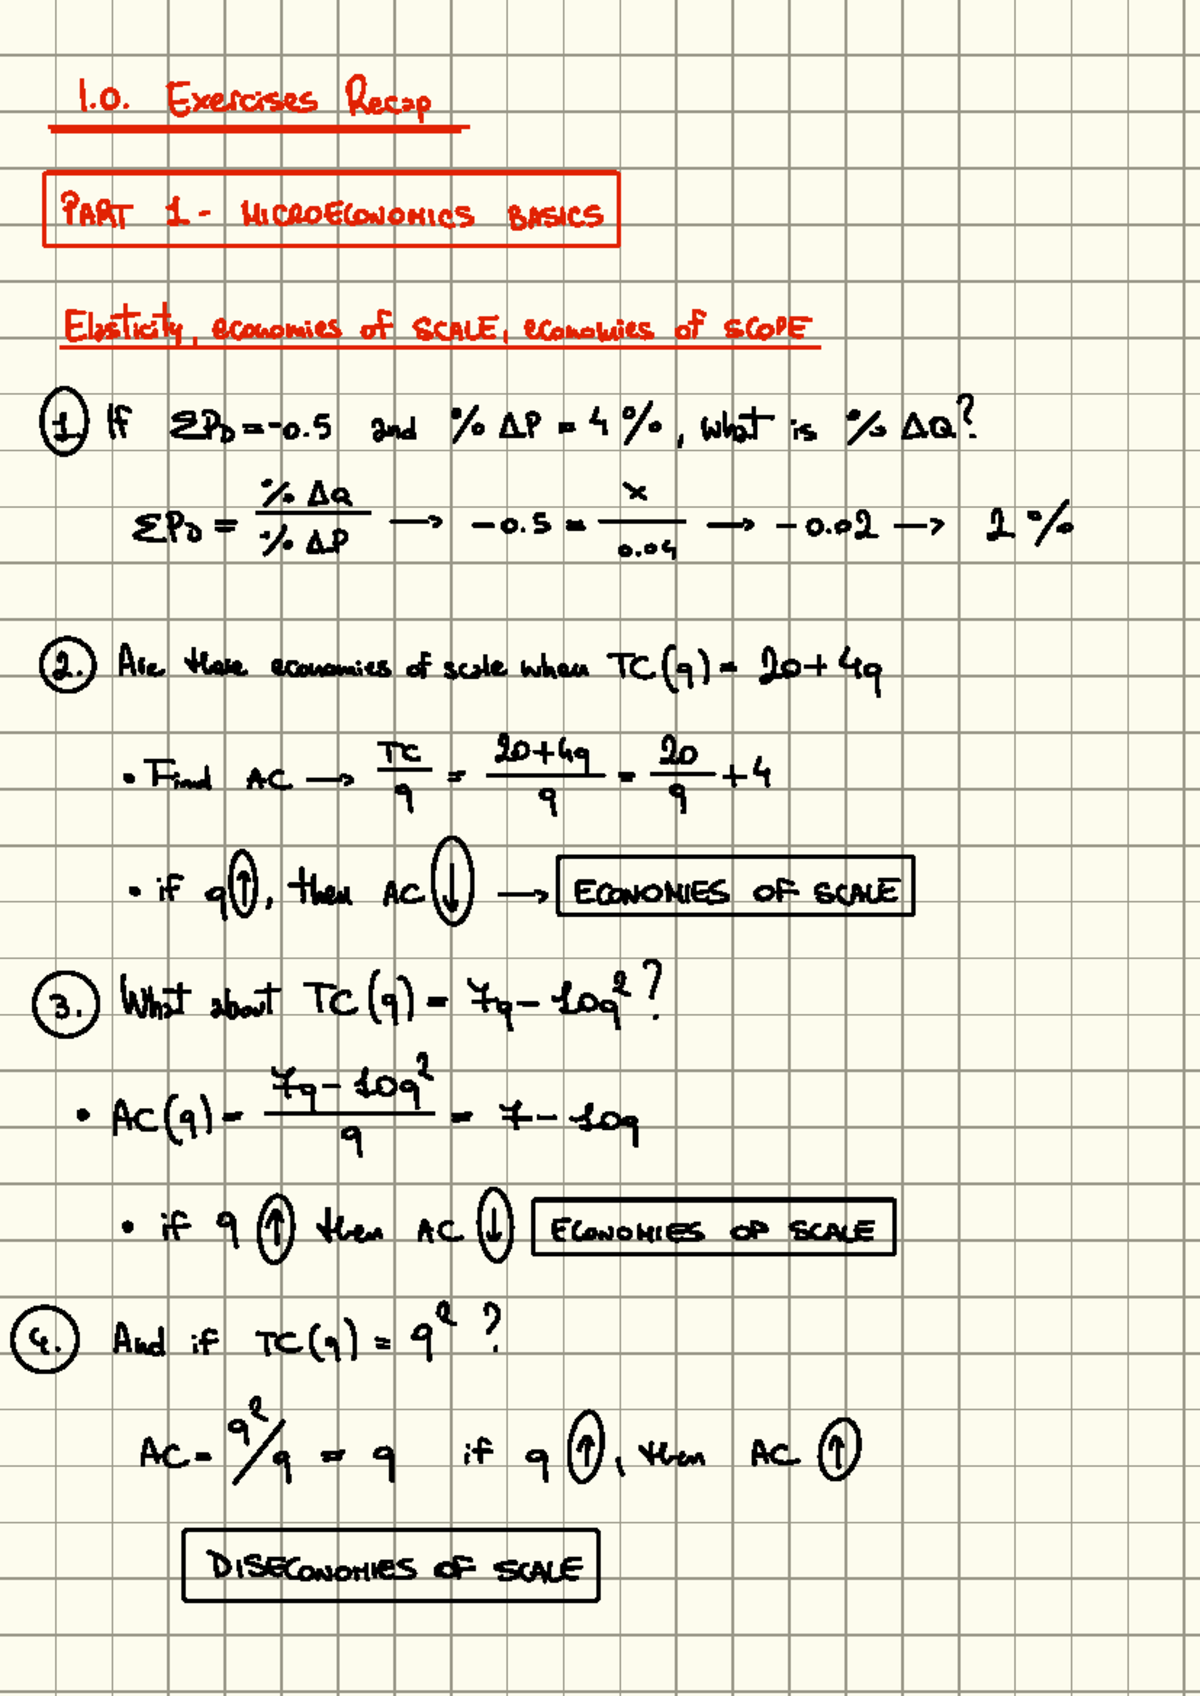 1.0. Exercises Recap
PART 1 - MICROECONOMICS BASICS
Elasticity, economies of SCALE, economies of SCOPE
1 If ΣPD = -0.5 and % ΔP = 4 %, what is % ΔQ?
ΣPD = % ΔQ / % ΔP → -0.5 = x / 0.04 → -0.02 → 2 %
2. Are there economies of scale when TC(q) = 20 + 4q
• Find AC → TC / q = 20+4q / q = 20 / q + 4
• if q ↑, then AC ↓ → ECONOMIES OF SCALE
3. What about TC(q) = 7q - 10q² ?
• AC(q) = 7q - 10q² / q = 7 - 10q
• if q ↑ then AC ↓ ECONOMIES OF SCALE
4. And if TC(q) = q² ?
AC = q²/q = q if q ↑, then AC ↑
DISECONOMIES OF SCALE